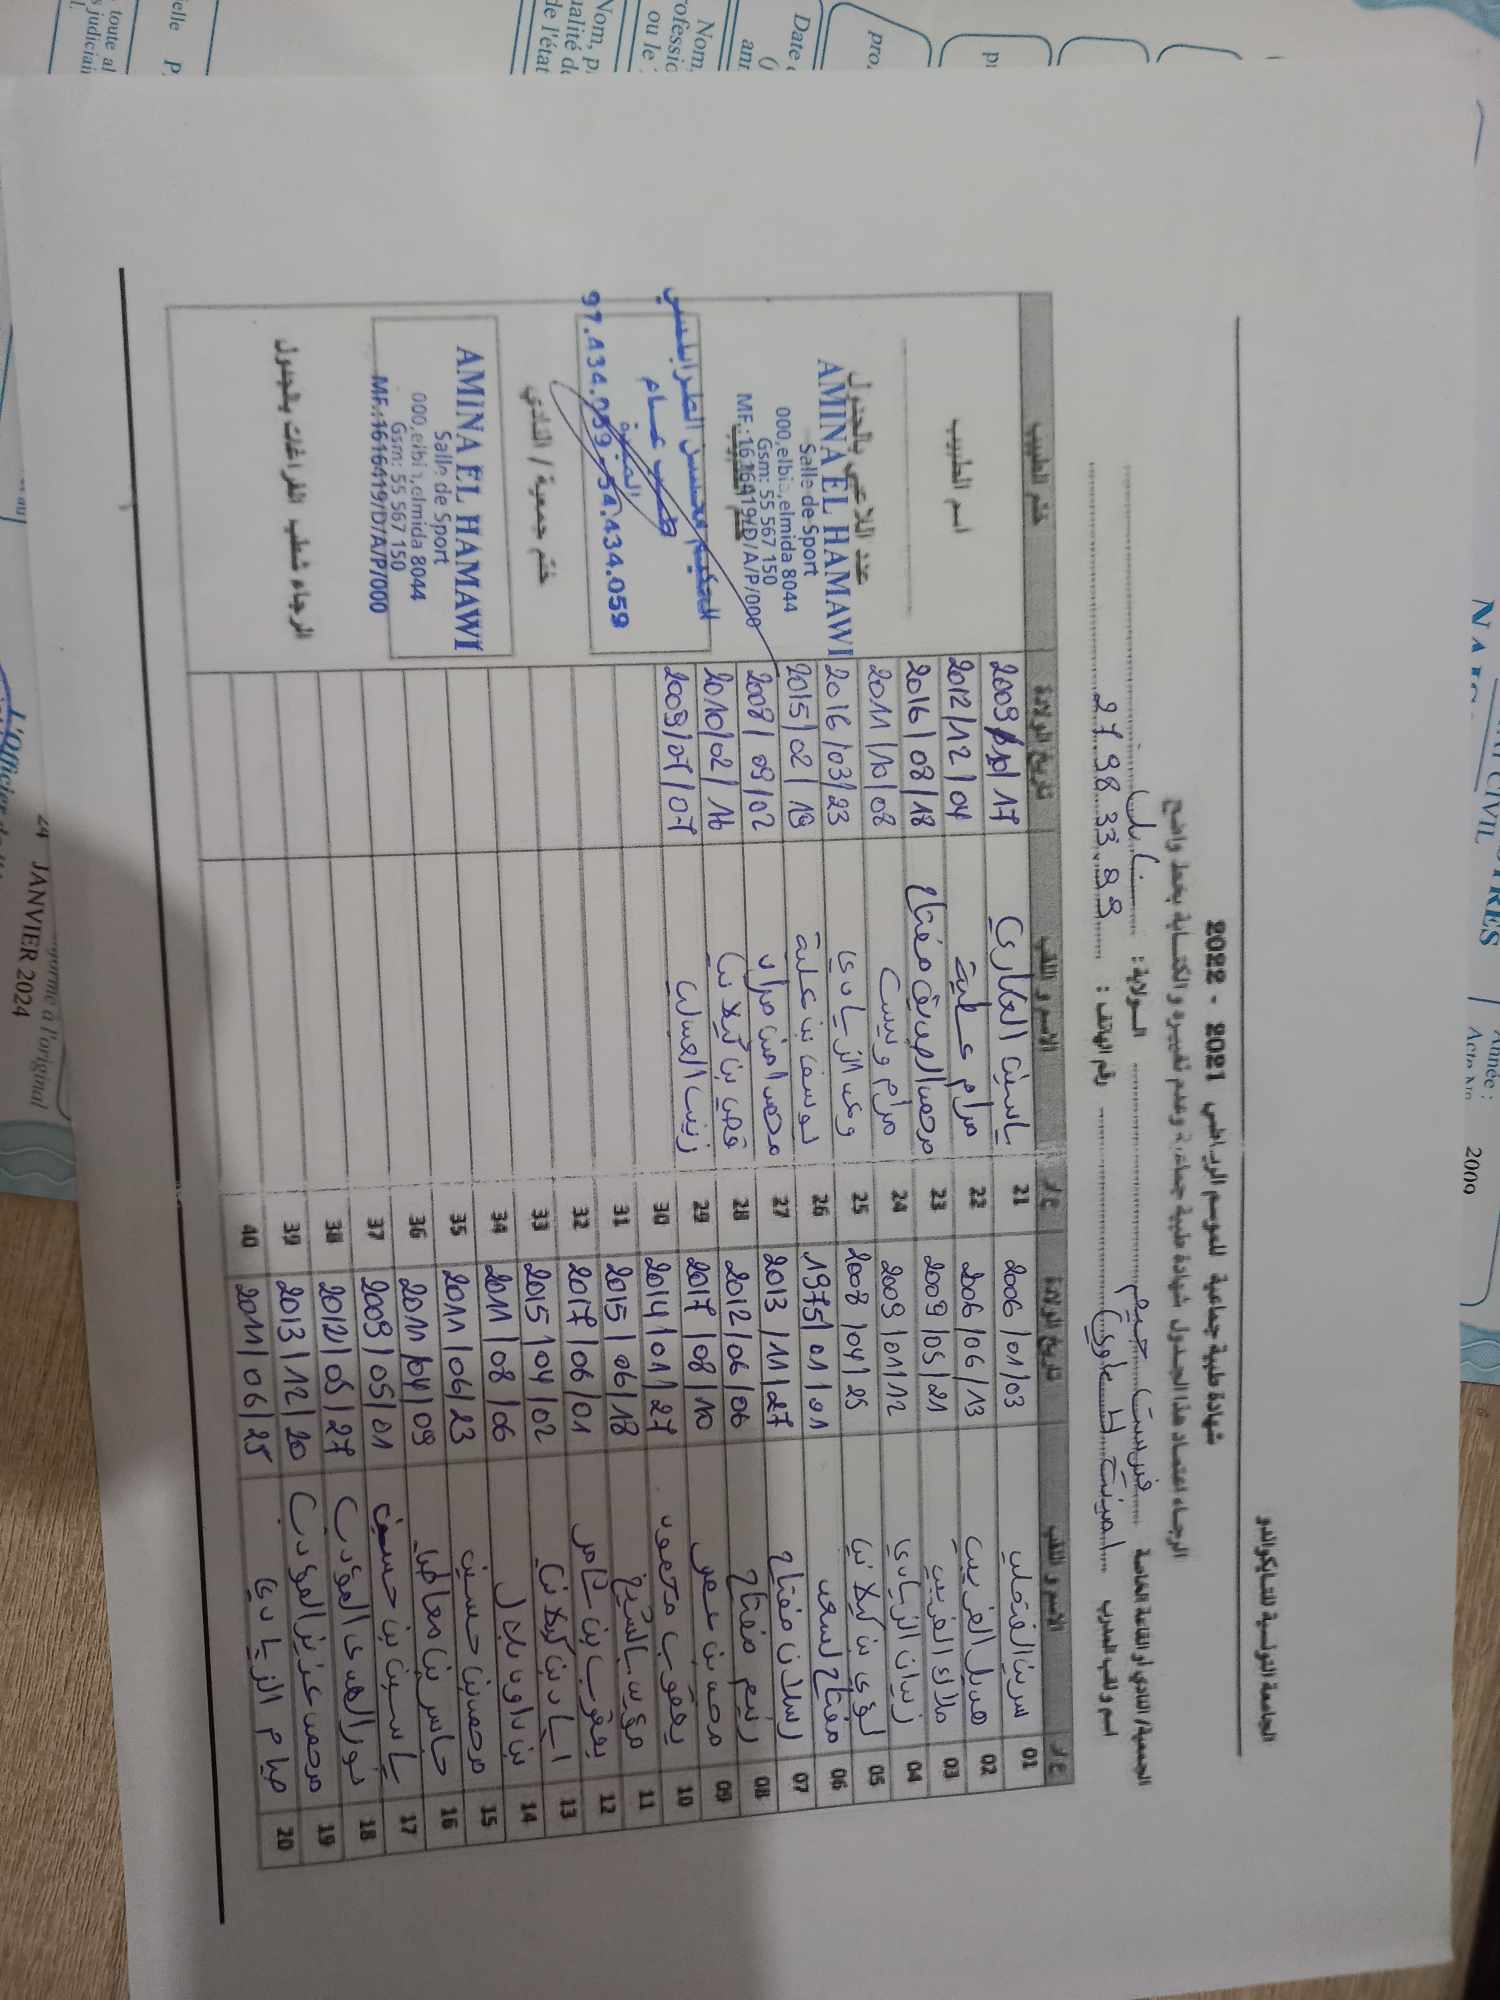 الجامعة التونسية للتايكواندو
شهادة طبية جماعية للموسم الرياضي 2021 - 2022
الرجاء اعتماد هذا الجدول شهادة طبية جماعية وعدم تغييره و الكتابة بخط واضح
الجمعية/ النادي أو القاعة الخاصة فيرست جيم الولاية : نابل
اسم و لقب المدرب أمينة الحماوي رقم الهاتف : 27983399
ع/د الاسم و اللقب تاريخ الولادة ع/د الاسم و اللقب تاريخ الولادة ختم الطبيب
01 سيرين 2006/01/03 21 ياسين العكاري 2009/10/17
02 هديل الغربي 2006/06/13 22 مرام عطية 2012/12/04
03 ملاك الغربي 2009/05/21 23 محمد الصديق مفتاح 2016/08/18
04 زينان الزيادي 2009/01/12 24 مرام ونيس 2011/10/08
05 لؤي بن كيلاني 2008/04/25 25 وعد الزيادي 2016/03/23
06 مفتاح لسعد 1975/01/01 26 يوسف بن علية 2015/02/19
07 رسلان مفتاح 2013/11/27 27 محمد امين مراد 2008/09/02
08 رنيم مفتاح 2012/06/06 28 قصي بن كيلاني 2010/02/16
09 محمد بن عمر 2017/08/10 29 زينب العسلي 2009/07/07
10 يعقوب محمود 2014/01/27 30
11 مؤيد بالشيخ 2015/06/18 31
12 يعقوب بن عامر 2017/06/01 32
13 اياد بن كيلاني 2015/04/02 33
14 بن داود بلال 2011/08/06 34
15 محمد بن حسين 2011/06/23 35
16 جاسر بن معاطيا 2011/04/09 36
17 ياسين بن حسين 2009/05/01 37
18 نور الهدى المؤدب 2012/05/27 38
19 محمد عزيز المؤدب 2013/12/20 39
20 هيام الزيادي 2011/06/25 40
اسم الطبيب
عدد اللاعبين بالجدول
AMINA EL HAMAWI
Salle de Sport
elmida 8044
Gsm: 55 567 150
MF.:1616419/D/A/P/000
الحكيم محسن الطرابلسي
طب عام
الميدة
97.434.059-54.434.059
ختم جمعية / النادي
AMINA EL HAMAWI
Salle de Sport
elmida 8044
Gsm: 55 567 150
MF.:1616419/D/A/P/000
الرجاء شطب الفراغات بالجدول
24 JANVIER 2024
à l'original
L'Officier de
CIVIL
Année :
2009
Date
Nom,
ou le
Nom,
de l'état
toute